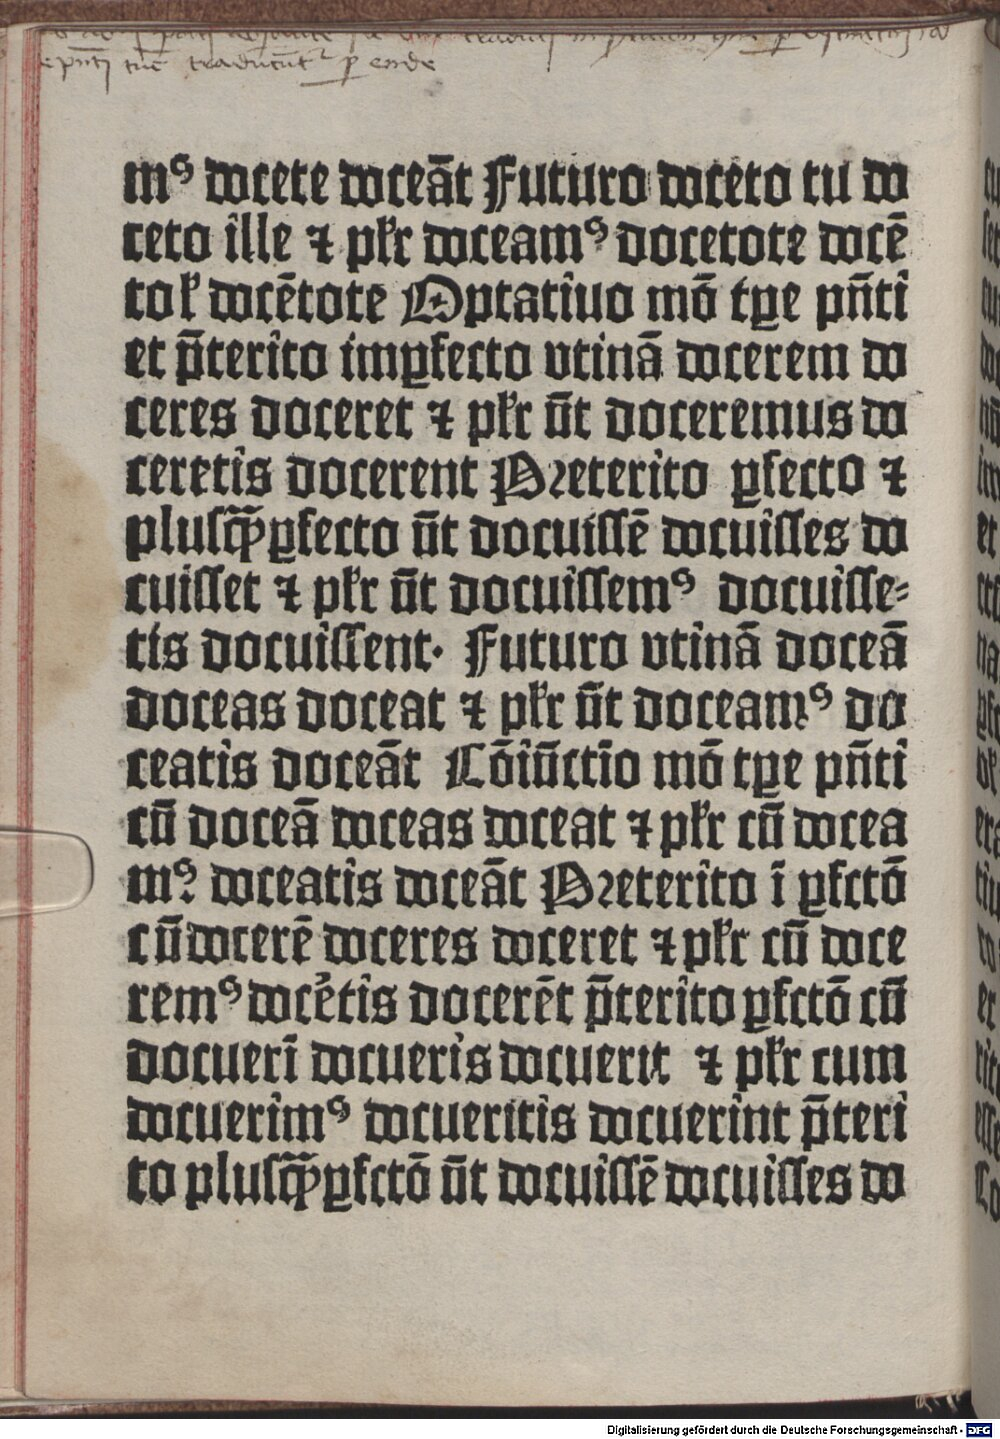 mꝰ docete doceāt Futuro doceto tu do
ceto ille ⁊ pl̄r doceamꝰ docetote docē
to ꝉ docētote Optatiuo mō tꝑe pn̄ti
et p̄terito imꝑfecto vtinā docerem do
ceres doceret ⁊ pl̄r vt̄ doceremus do
ceretis docerent Preterito ꝑfecto ⁊
plusq̄ꝑfecto vt̄ docuissē docuisses do
cuisset ⁊ pl̄r vt̄ docuissemꝰ docuisse⸗
tis docuissent· Futuro vtinā doceā
doceas doceat ⁊ pl̄r vt̄ doceamꝰ do
ceatis doceāt Cōiūctīo mō tꝑe pn̄ti
cū doceā doceas doceat ⁊ pl̄r cū docea
mꝰ. doceatis doceāt Preterito ī ꝑfctō
cū docerē doceres doceret ⁊ pl̄r cū doce
remꝰ doce͛tis docerēt p̄terito ꝑfctō cū
docuerī docueris docuerit ⁊ pl̄r cum
docuerimꝰ docueritis docuerint p̄teri
to plusq̄ꝑfctō vt̄ docuissē docuisses do
Digitalisierung gefördert durch die Deutsche Forschungsgemeinschaft - DFG